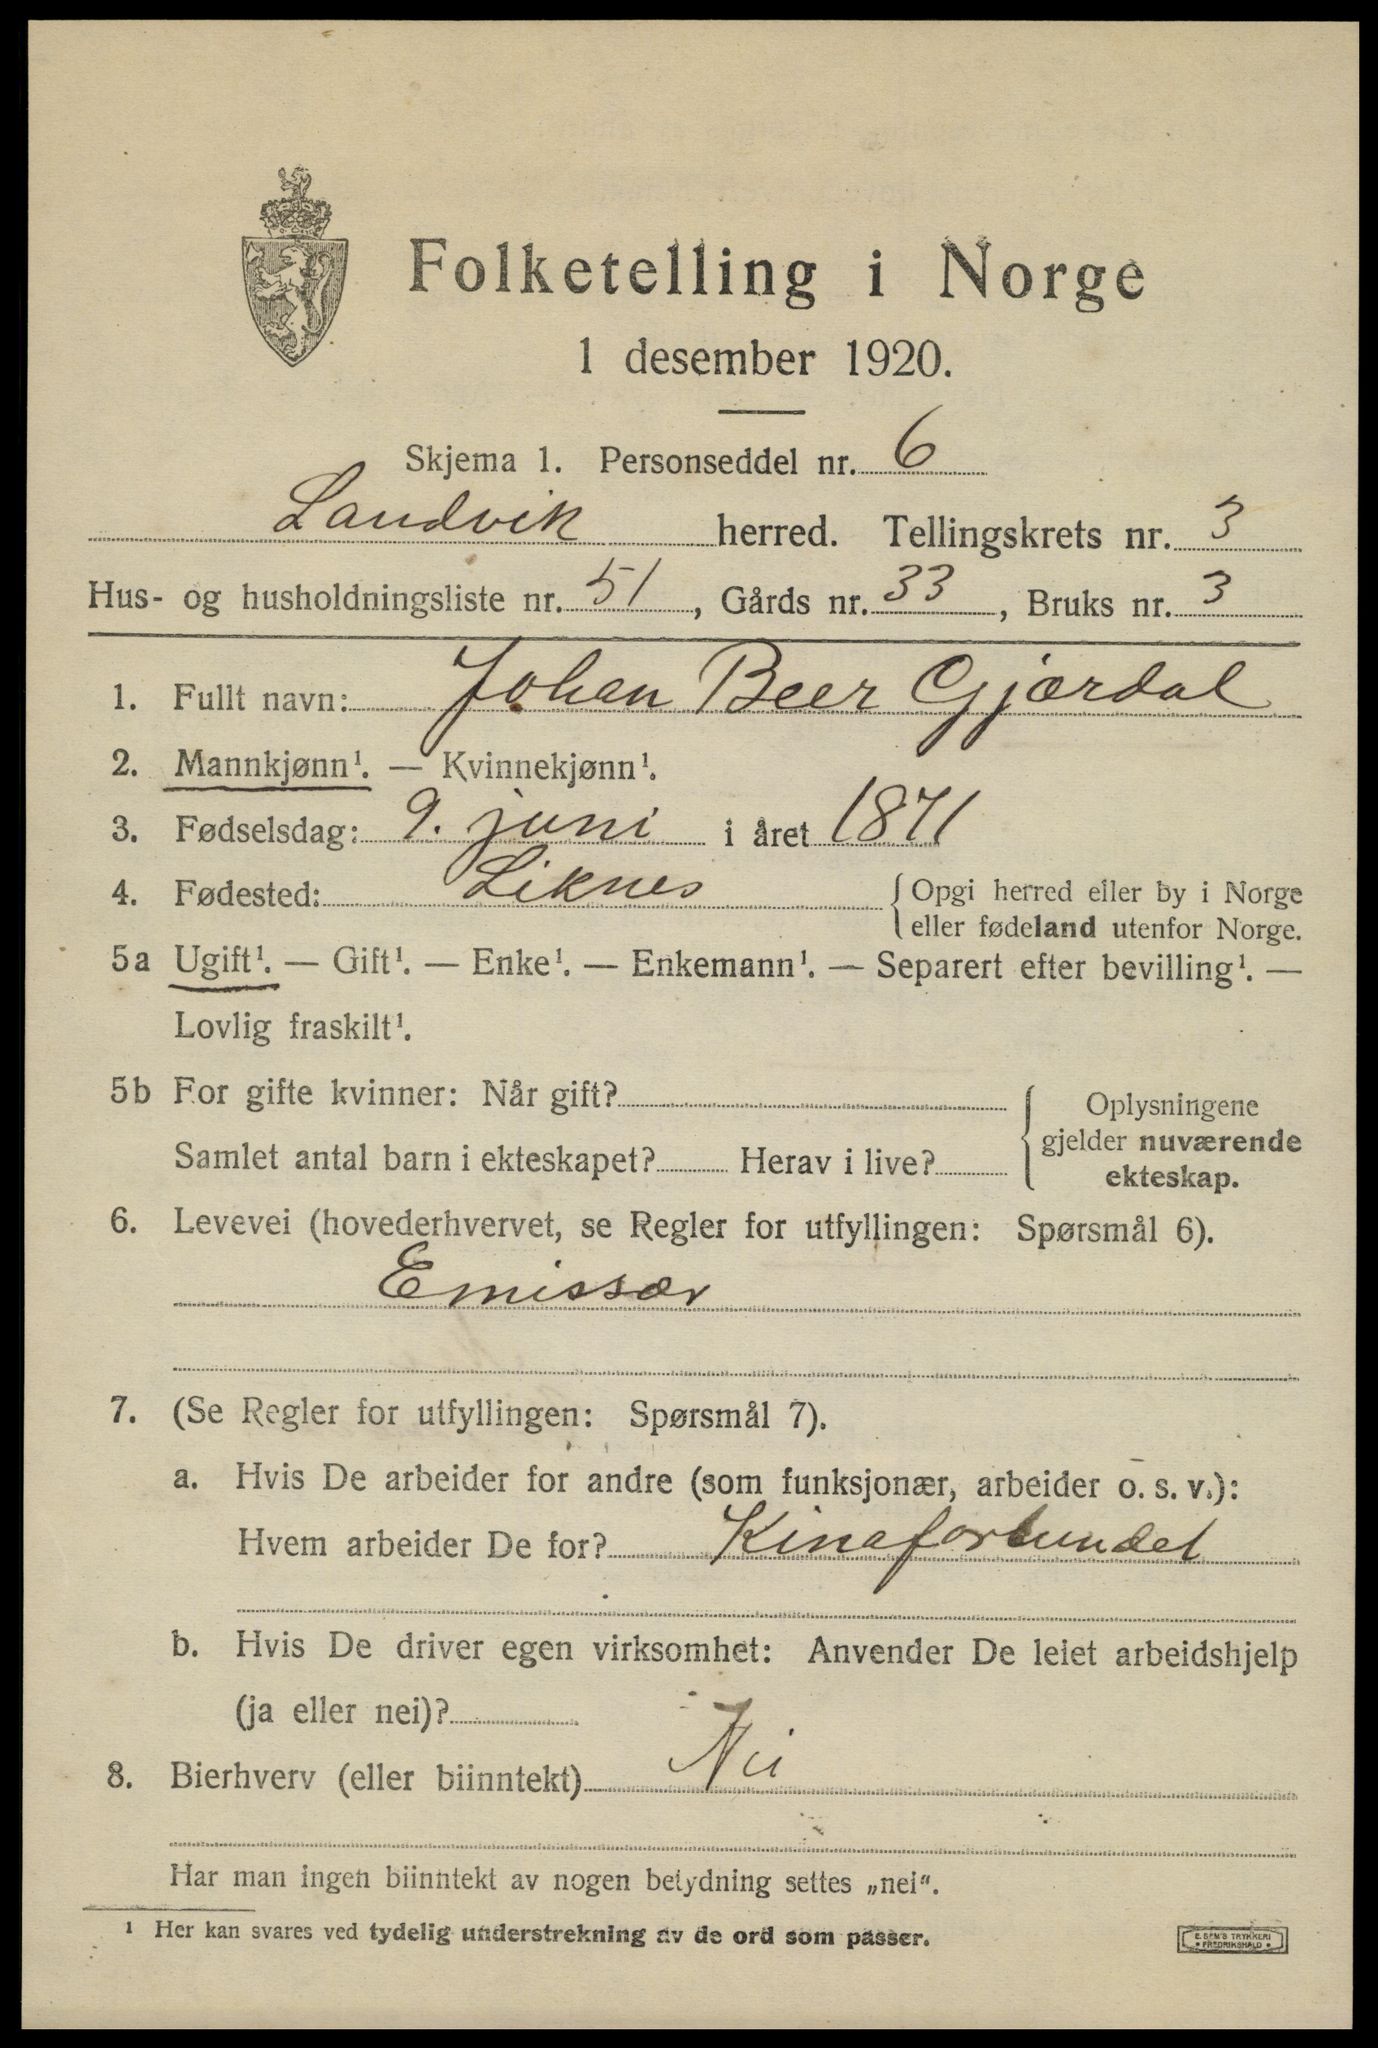 Folketelling i Norge
1 desember 1920.
Skjema 1. Personseddel nr. 6
Landvik herred. Tellingskrets nr. 3
Hus- og husholdningsliste nr. 51, Gårds nr. 33, Bruks nr. 3
1. Fullt navn: Johan Beer Gjærdal
2. Mannkjønn¹. — Kvinnekjønn¹.
3. Fødselsdag: 9. juni i året 1871
4. Fødested: Liknes { Opgi herred eller by i Norge
eller fødeland utenfor Norge.
5a Ugift¹. — Gift¹. — Enke¹. — Enkemann¹. — Separert efter bevilling¹. —
Lovlig fraskilt¹.
5b For gifte kvinner: Når gift?
Samlet antal barn i ekteskapet? Herav i live?
Oplysningene
gjelder nuværende
ekteskap.
6. Levevei (hovederhvervet, se Regler for utfyllingen: Spørsmål 6).
Emissær
7. (Se Regler for utfyllingen: Spørsmål 7).
a. Hvis De arbeider for andre (som funksjonær, arbeider o. s. v.):
Hvem arbeider De for? Kinaforbundet
b. Hvis De driver egen virksomhet: Anvender De leiet arbeidshjelp
(ja eller nei)?
8. Bierhverv (eller biinntekt) Nei
Har man ingen biinntekt av nogen betydning settes „nei“.
¹ Her kan svares ved tydelig understrekning av de ord som passer.
E. SEM'S TRYKKERI
• FREDRIKSHALD •